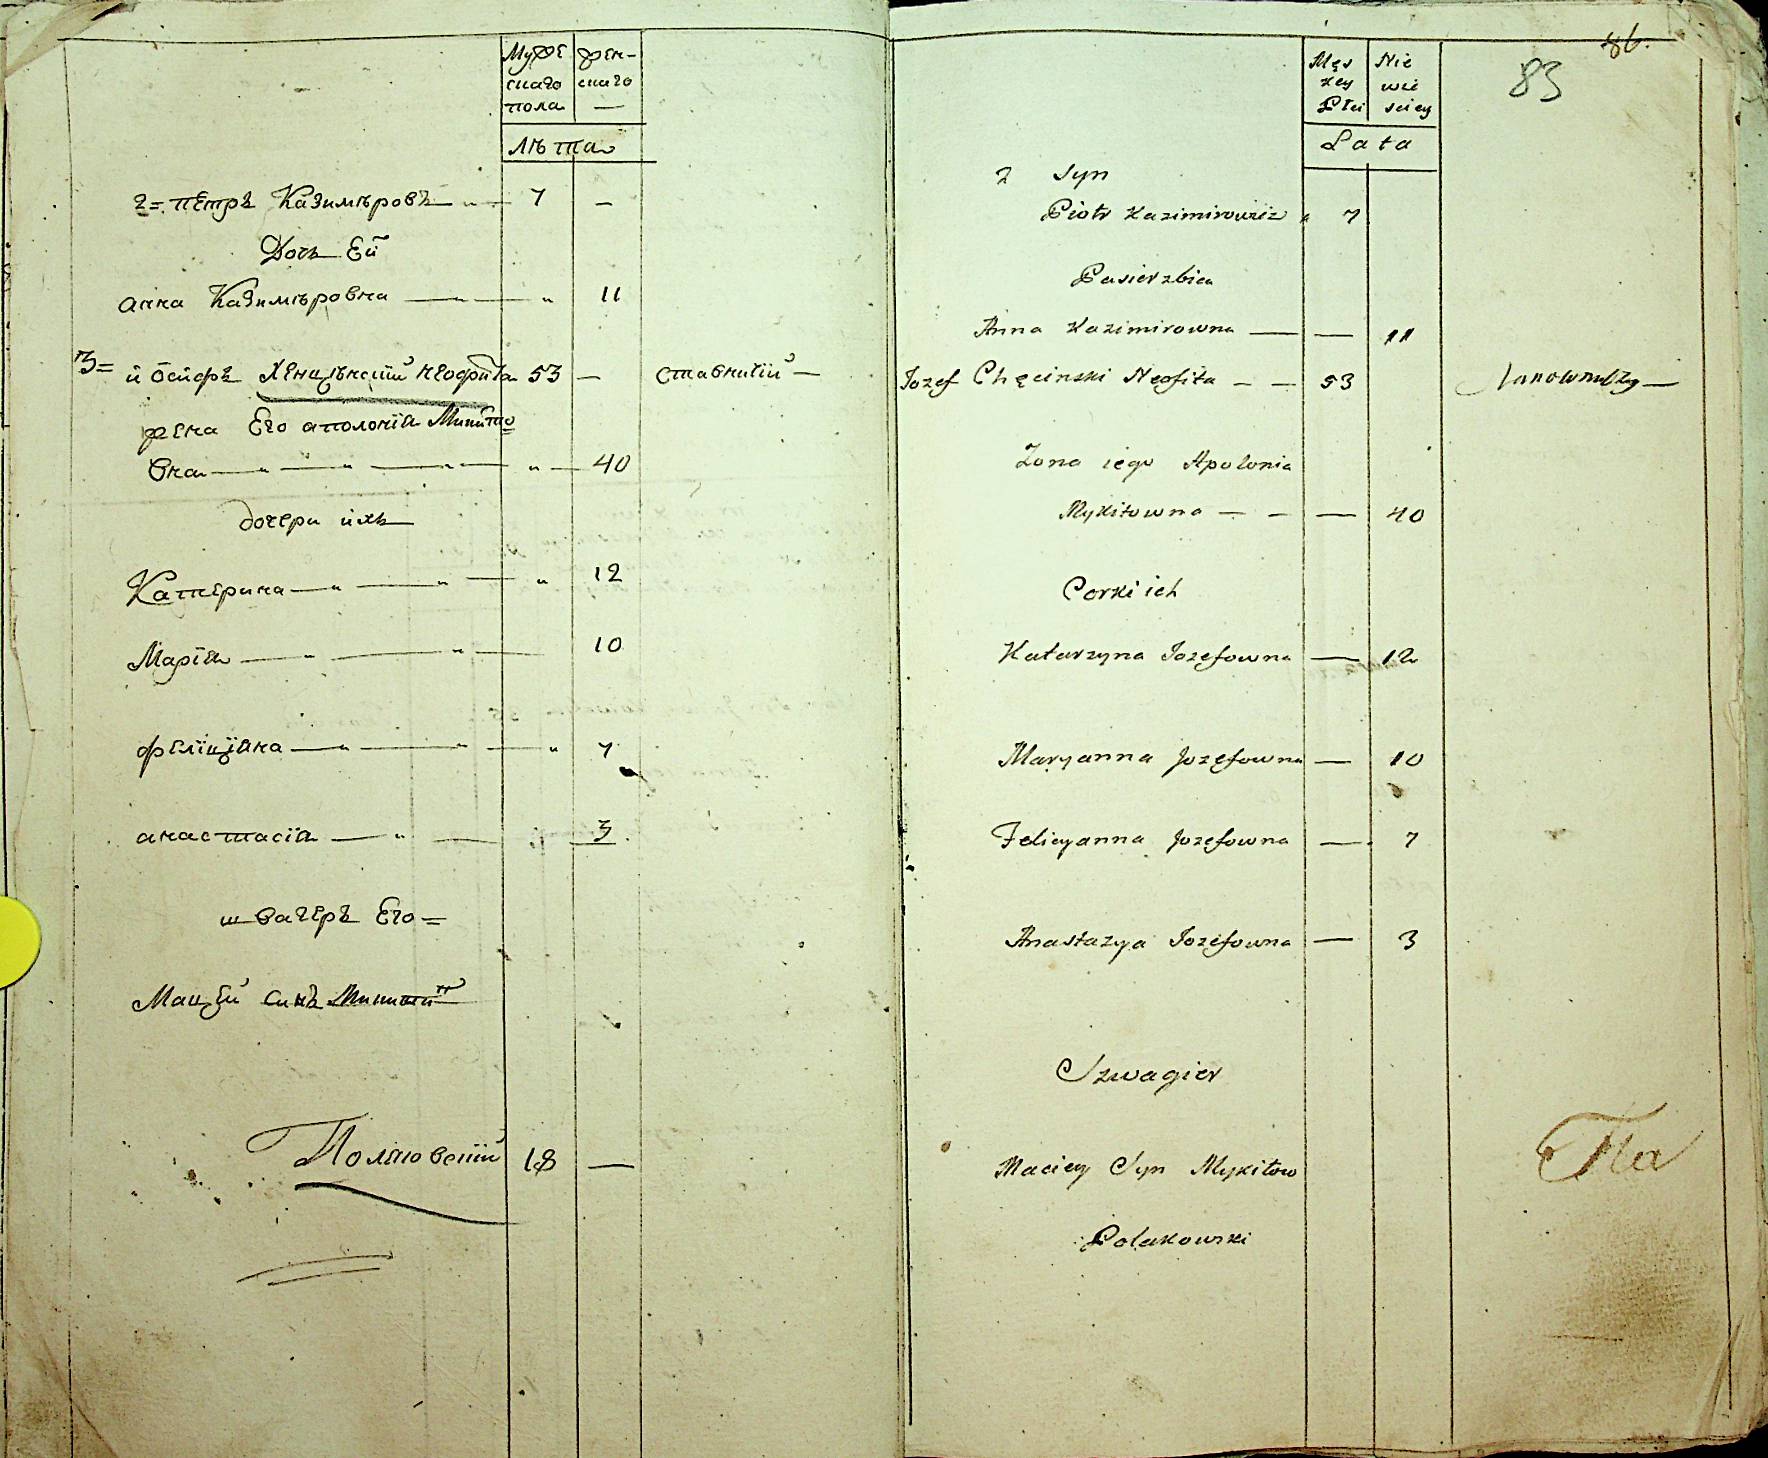 Муже жен-
скаго скаго
пола —
Лѣта
2 = Петръ Казимѣровъ 7 —
Дочь Ей
Анна Казимѣровна — „ — „ 11
3 = Иосифъ Хенцѣнскій Неофита 53 — ставничій —
жена Его Аполонія Микито=
вна — „ — „ — „ — „ — 40
дочери ихъ
Катерина — „ — „ — „ 12
Марія — „ — „ — 10
Феліціяна — „ — „ — „ 7
Анастасія — „ — 3
швагеръ Его =
Мацѣй Синъ Микитй
Поляковскій 18 —
86.
83
Męs Nie
key wie
Płci sciey
Lata
2 Syn
Piotr Kazimirowicz 7
Pasierzbica
Anna Kazimirowna — — 11
Jozef Chęcinski Neofita — — 53
Zona iego Apolonia
Mykitowna — — — 40
Corki ich
Katarzyna Jozefowna — 12
Maryanna Jozefowna — 10
Felicyanna Jozefowna — 7
Anastazya Jozefowna — 3
Szwagier
Maciey Syn Mykitow
Polakowski
На